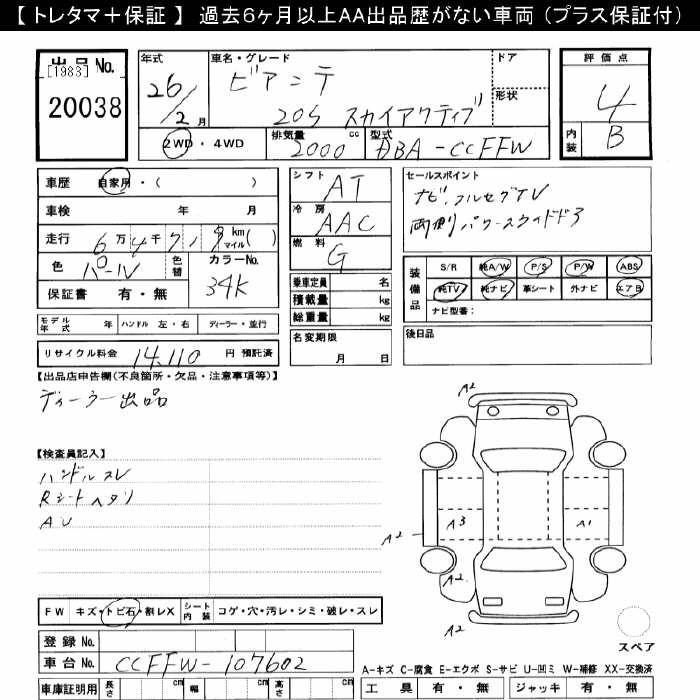 【トレタマ＋保証】 過去6ヶ月以上AA出品歴がない車両（プラス保証付）
出品No.
[1983]
20038
年式
26/2月
車名・グレード
ビアンテ
20S スカイアクティブ
ドア
形状
評価点
4
内装
B
2WD・4WD
排気量
2000
cc
型式
DBA-CCFFW
車歴 自家用・（ ）
車検 年 月
走行 6万4千7 km マイル( )
色 パール 色替 カラーNo. 34K
保証書 有・無
シフト
AT
冷房
AAC
燃料
G
乗車定員 名
積載量 kg
総重量 kg
セールスポイント
ナビ、フルセグTV
両側パワースライドドア
装備品
S/R 純A/W P/S P/W ABS
純TV 純ナビ 革シート 外ナビ エアB
ナビ型番:
モデル年式 年 ハンドル 左・右 ディーラー・並行
名変期限
月 日
後日品
リサイクル料金 14,110 円 預託済
【出品店申告欄(不良箇所・欠品・注意事項等)】
ディーラー出品
【検査員記入】
ハンドルスレ
Rシートヘタリ
AU
A2
A2
A3
A1
A2
A2
スペア
FW キズ・トビ石・割レX シート内装 コゲ・穴・汚レ・シミ・破レ・スレ
登録No.
車台No. CCFFW-107602
A-キズ C-腐食 E-エクボ S-サビ U-凹ミ W-補修 XX-交換済
車庫証明用 長さ cm 幅 cm 高さ cm
工具 有・無 ジャッキ 有・無